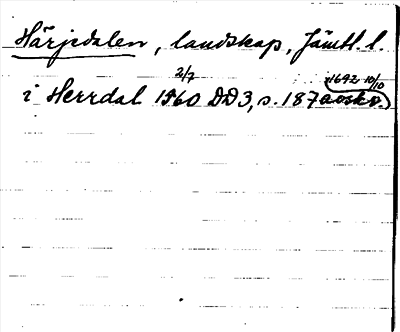 Härjedalen, landskap, Jämtl. l.
2/7 1692 10/10
i Herrdal 1560 DD3, s. 187 avskr.)